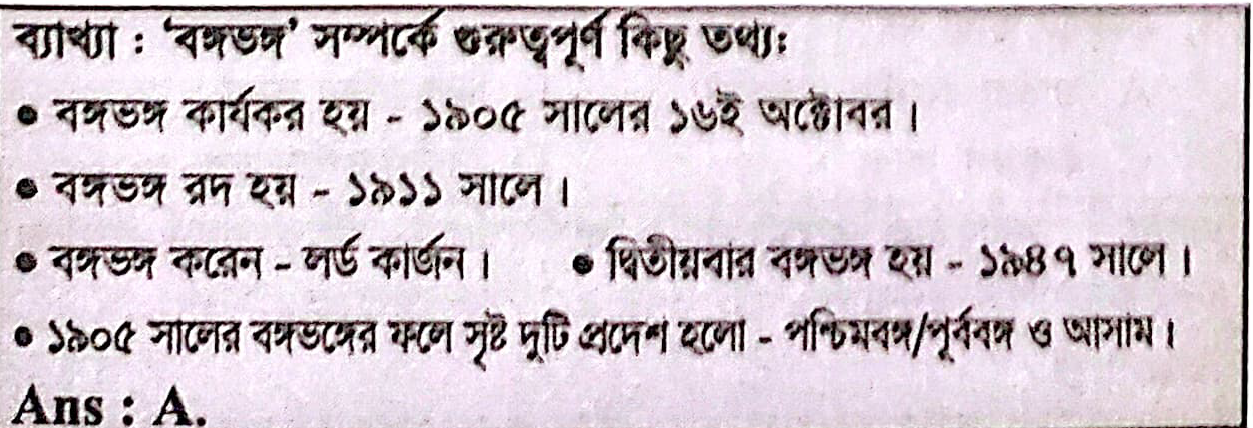 ব্যাখ্যা : ‘বঙ্গভঙ্গ’ সম্পর্কে গুরুত্বপূর্ণ কিছু তথ্য:
● বঙ্গভঙ্গ কার্যকর হয় - ১৯০৫ সালের ১৬ই অক্টোবর।
● বঙ্গভঙ্গ রদ হয় - ১৯১১ সালে।
● বঙ্গভঙ্গ করেন - লর্ড কার্জন। ● দ্বিতীয়বার বঙ্গভঙ্গ হয় - ১৯৪৭ সালে।
● ১৯০৫ সালের বঙ্গভঙ্গের ফলে সৃষ্ট দুটি প্রদেশ হলো - পশ্চিমবঙ্গ/পূর্ববঙ্গ ও আসাম।
Ans : A.